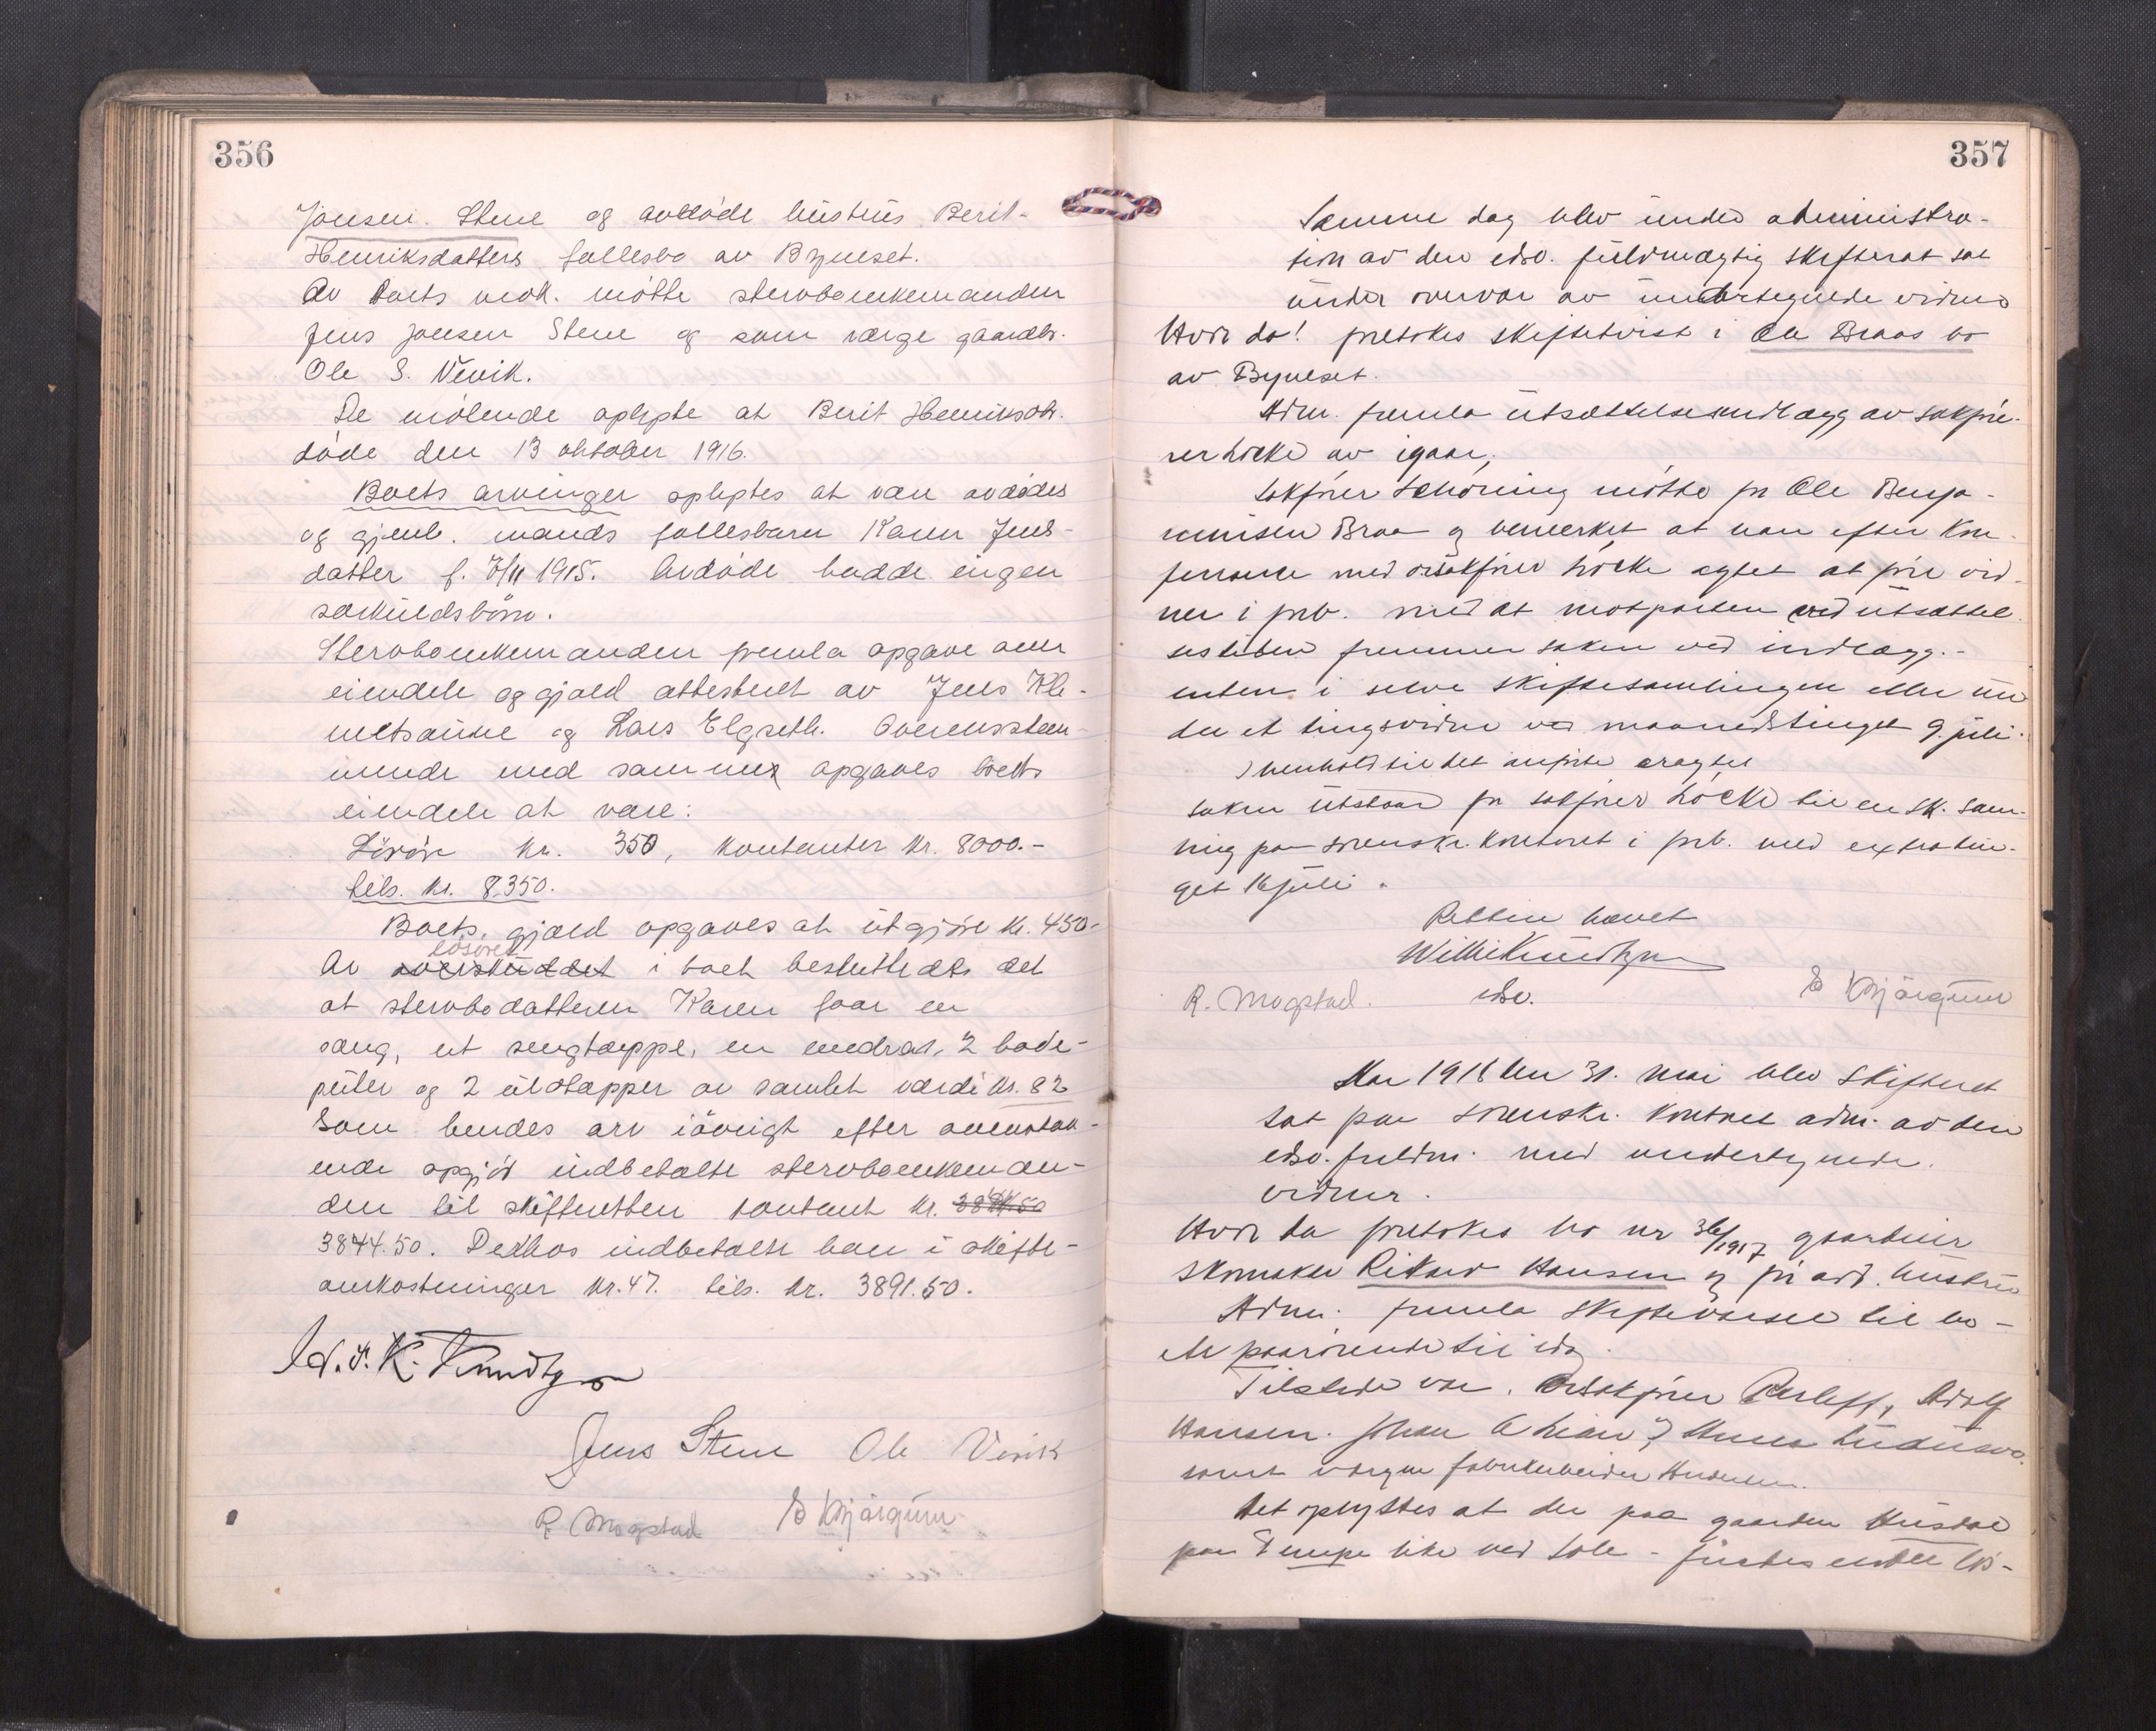 356
Jonsen Stene og avdöde hustrus Berit
Henriksdatters fællesbo av Byneset.
Av boets vedk. mötte stervboenkemanden
Jens Jonsen Stene og som værge gaardbr.
Ole S. Vevik.
De mötende oplyste at Berit Henriksdtr.
döde den 13 oktober 1916.
Boets arvinger oplystes at være avdödes
og gjenl. mands fællesbarn Karen Jens-
datter f. 7/11 1915. Avdöde hadde ingen
særkuldsbörn.
Stervboenkemanden fremla opgave over
eiendele og gjæld attestert av Jens Kle-
metsaune og Lars Elgseth. Overensstem-
mende med samme opgaves boets
eiendele at være:
Lösöre kr. 350, kontanter kr. 8000.-
tils. kr. 8350.
Boets gjæld opgaves at utgjöre kr. 450-
lösöret
Av overskuddet i boet besluttedes det
at stervbodatteren Karen faar en
sæng, et sengtæppe, en endrat, 2 hode-
puter og 2 uldtæpper av samlet værdi kr. 82
Som hendes arv iövrigt efter ovenstaa-
ende opgjör indbetalte stervboenkeman-
den til skifteretten kontant kr. 3844.50
3844.50. Derhos indbetalte han i skifte-
omkostninger kr. 47. tils. kr. 3891.50.
W. F. K. Knudtzon
Jens Stene Ole Vevik
R. Mogstad E Kjärgum
357
Samme dag blev under administra-
tion av den edsv. fuldmægtig skifteret sat
under overvær av undertegnede vidner
Hvor da! foretokes skiftetvist i Ole Braas bo
av Byneset.
Adm. fremla utsættelsesindlæg av sakfö-
rer Löcke av igaar,
Sakförer Schöning mötte for Ole Benja-
minsen Braa og bemerket at han efter kon-
ferance med o.r.sakförer Löcke agtet at före vid-
ner i forb. med at motparten ved utsættel
sestiden fremmer saken ved indlæg.-
enten i selve skiftesamlingen eller un
der et tingsvidne ved maanedstinget 9. juli.
I henhold til det anförte eragtet
saken utstaar for sakförer Löcke til en sk. sam-
ling paa sorenskr. kontoret i forb. med extratin-
get 16 juli.
Retten hævet
Willi Knudtzon
edsv.
R. Mogstad. E Kjärgum
Aar 1918 den 31. mai blev skifteret
sat paa sorenskr. kontoret adm. av den
edsv. fuldm. med undertegnede
vidner.
Hvor da foretokes bo nr 36/1917 gaardeier
skomaker Rikard Hansen og för avd. hustru
Adm. fremla skiftevarsel til bo-
ets paarörende til idag.
Tilstede var. Orsakförer Parleff, Adolf
Hansen. Johan A Lian,
samt værgen fabrikarbeider
Det oplystes at der paa gaarden
paa Tempe like ved